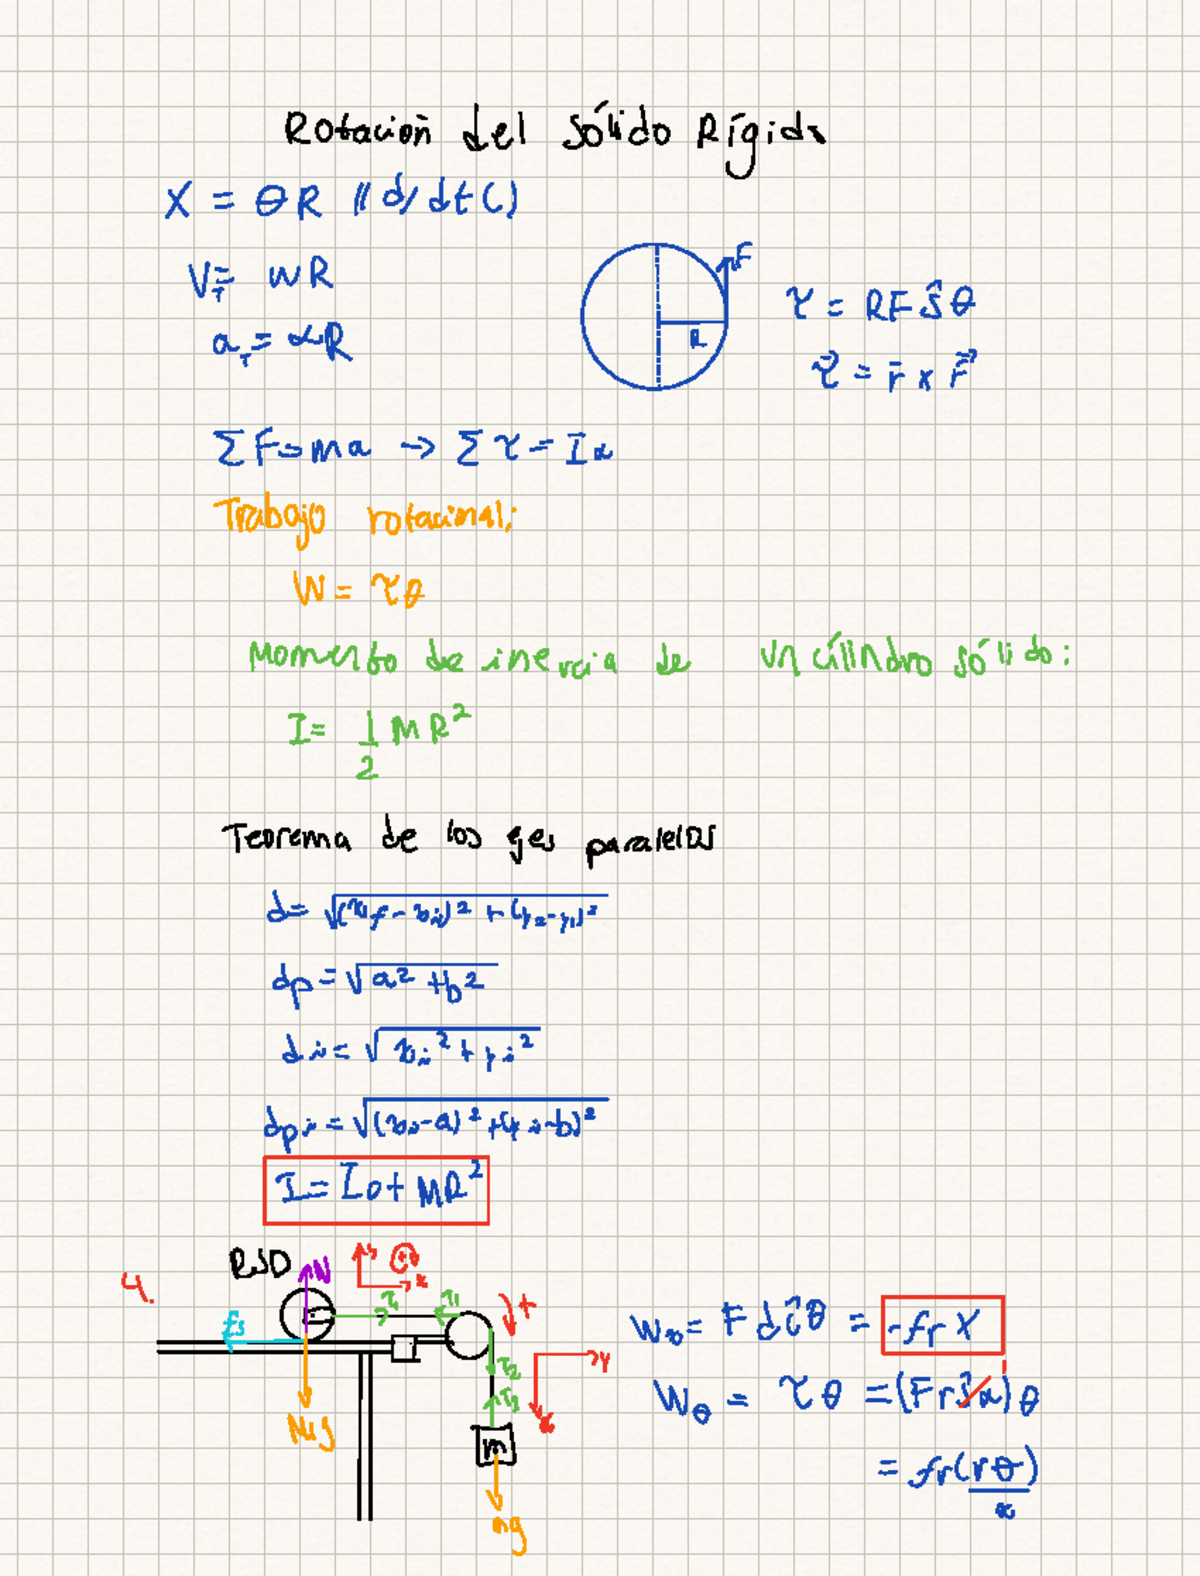 Rotación del Sólido Rígido
X = θR // d/dt ( )
V_T = wR
a_T = αR
F
R
τ = RF ŝ θ
τ⃗ = r⃗ x F⃗
Σ F = ma → Σ τ = Iα
Trabajo rotacional:
W = τθ
Momento de inercia de un cílindro sólido:
I = 1/2 MR²
Teorema de los ejes paralelos
d = √(x_f - x_i)² + (y_2 - y_1)²
d_p = √a² + b²
d_i = √x_i² + y_i²
d_pi = √(x_i - a)² + (y_i - b)²
I = I_0 + MR²
4.
RSD
N
y
+
x
fs
T_1
T_1
+
T_2
T_3
y
x
M_1g
m
mg
W_D = F d ĉ θ = -fr X
W_θ = τθ = (F r ŝ α) θ
1
= fr (rθ)
x